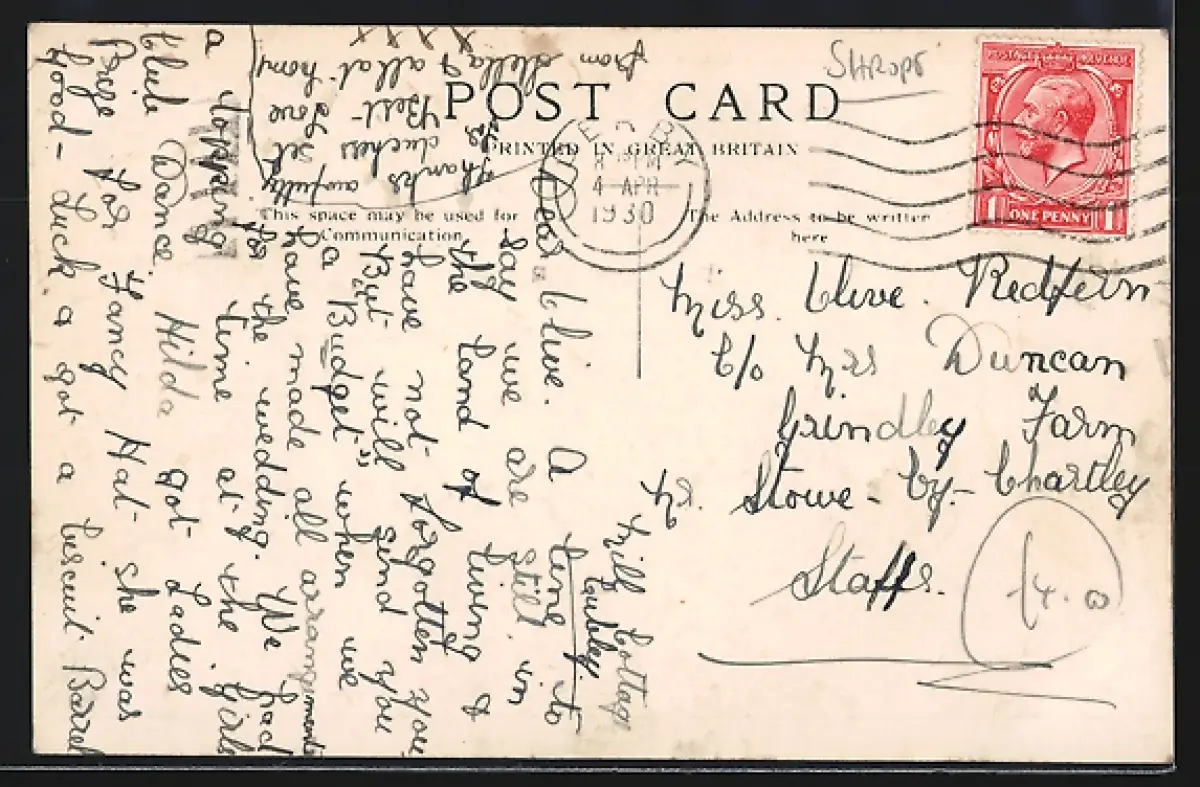 SHROPS
POST CARD
PRINTED IN GREAT BRITAIN
This space may be used for
Communication
The Address to be written
here
DERBY
4 APR
1930
POSTAGE REVENUE
1 ONE PENNY 1
Miss. Clive. Redfern
C/o Mrs Duncan
Grindley Farm
Nr. Stowe-by-Chartley
Staffs.
£4.00
Mill Cottage
Dear Clive. A line to
say we are still in
the land of living &
have not forgotten you
But will send you
a "Budget" when we
have made all arrangments
for the wedding. We had
a topping time at the girls
Club Dance. Hilda got Ladies
Prize for Fancy Hat she was
Good-luck. a got a biscuit Barrel
Thanks awfully
for duchess set
Best Love
from Stella & all at home
XXXX